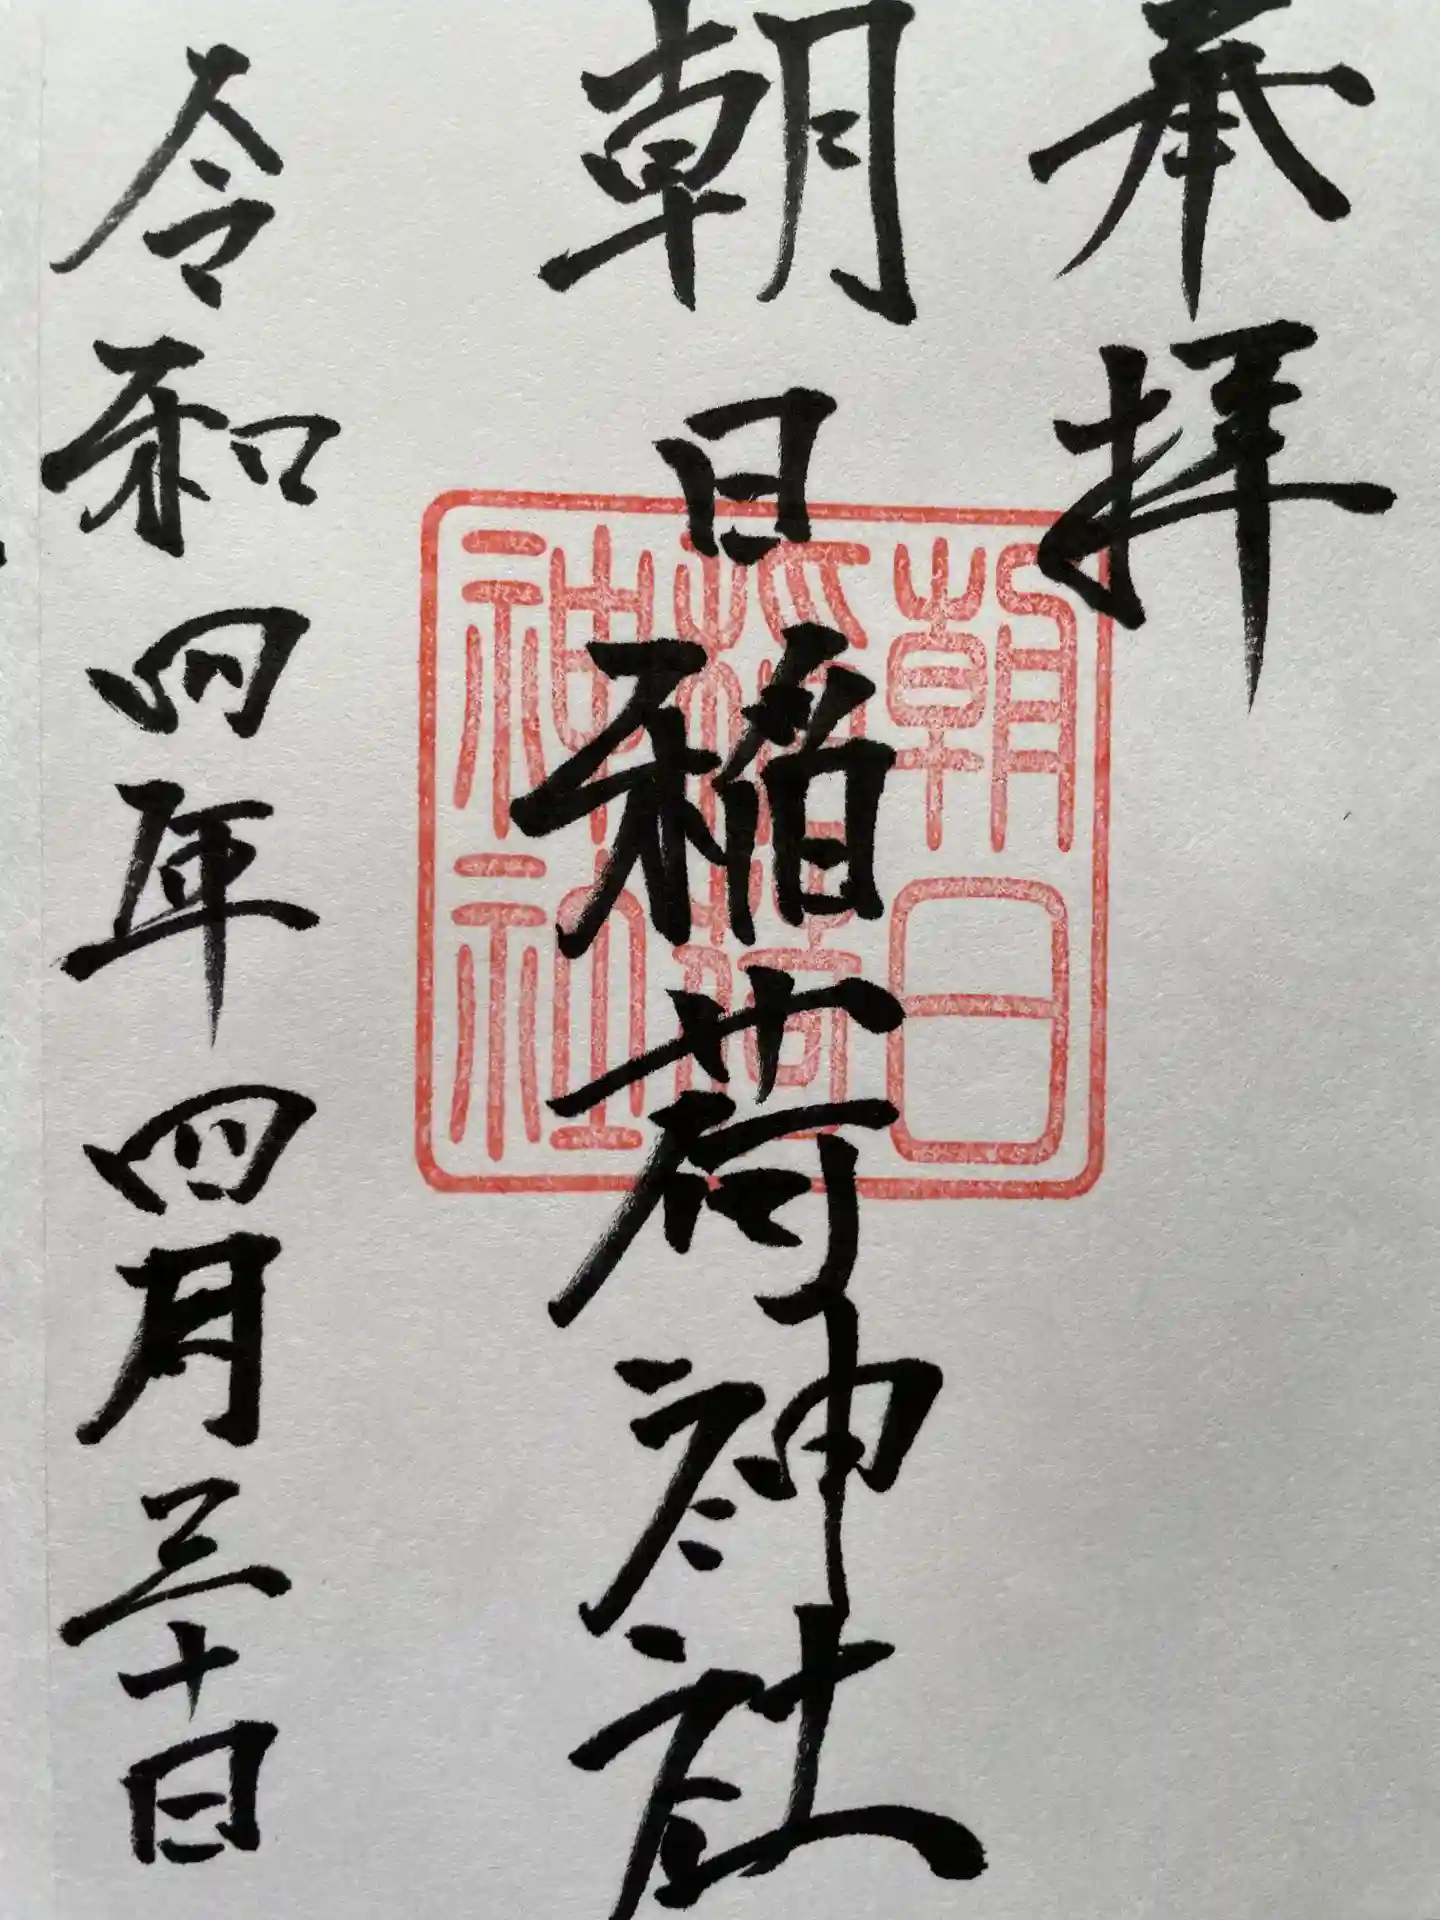 奉拝
朝日稲荷神社
朝日
稲荷
神社
令和四年四月三十日